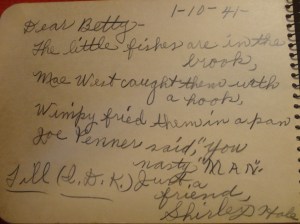 1-10-41-
Dear Betty-
The little fishes are in the
brook,
Mae West caught them with
a hook,
Wimpy fried them in a pan
Joe Penner said, "You
nasty "MAN."
Till (I.D.K.) Just a
friend,
Shirley